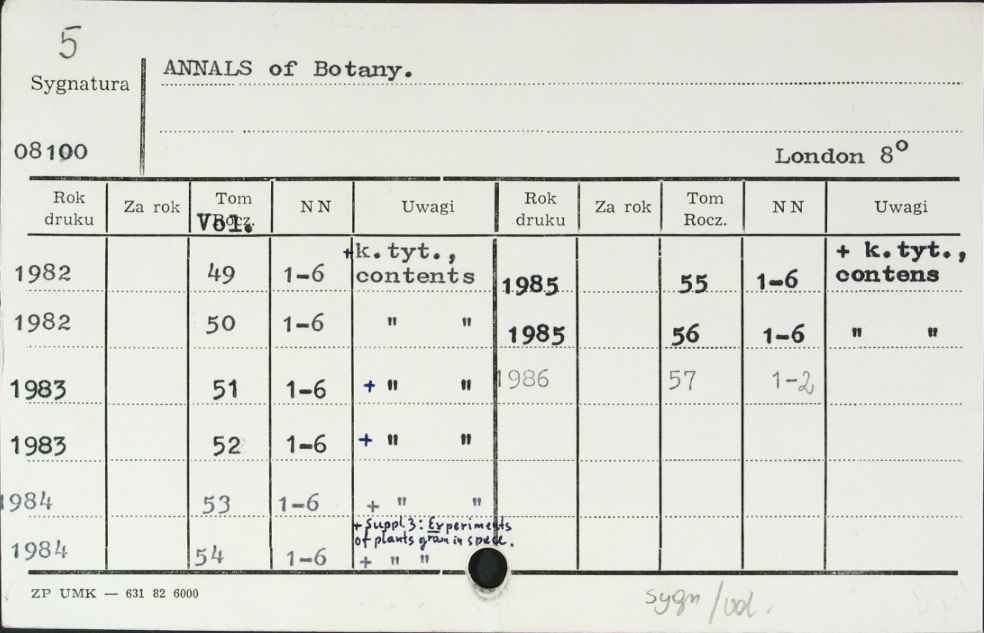 5
Sygnatura
ANNALS of Botany.
08100
London 8°
Rok druku Za rok Tom Rocz. Vol. NN Uwagi Rok druku Za rok Tom Rocz. NN Uwagi
1982 49 1-6 +k.tyt., contents 1985 55 1-6 + k.tyt., contens
1982 50 1-6 " " 1985 56 1-6 " "
1983 51 1-6 + " " 1986 57 1-2
1983 52 1-6 + " "
1984 53 1-6 + " "
+ Suppl 3: Experiments
of plants grown in space.
1984 54 1-6 + " "
ZP UMK — 631 82 6000
sygn/vol.